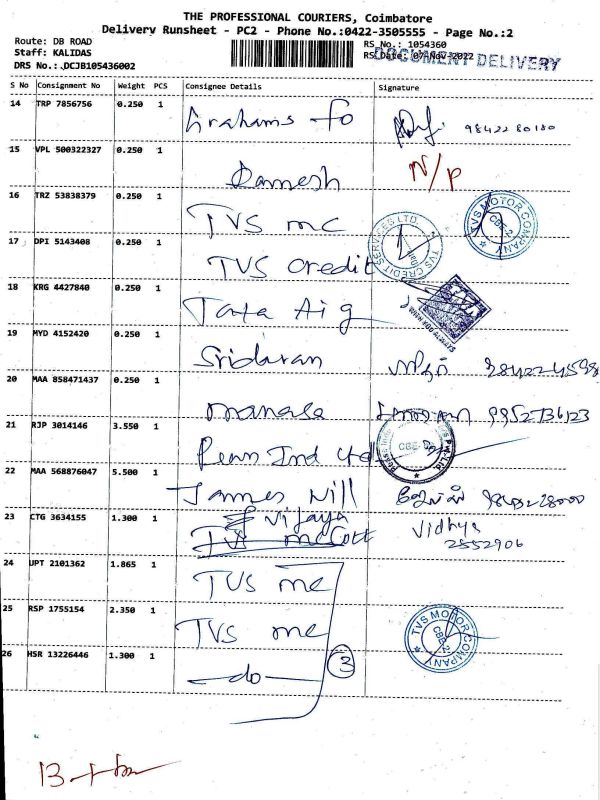 THE PROFESSIONAL COURIERS, Coimbatore
Delivery Runsheet - PC2 - Phone No.:0422-3505555 - Page No.:2
Route: DB ROAD
RS No.: 1054360
Staff: KALIDAS
RS Date: 07-Nov-2022
DOCUMENT DELIVERY
DRS No.: DCJB105436002
S No Consignment No Weight PCS Consignee Details Signature
14 TRP 7856756 0.250 1 Grahams Fo 9842280180
15 VPL 500322327 0.250 1 Ramesh N/P
16 TRZ 53838379 0.250 1 TVS mc TVS MOTOR COMPANY CBE-2
17 DPI 5143408 0.250 1 TVS Credit TVS CREDIT SERVICES LTD.
18 KRG 4427840 0.250 1 Tata Aig
19 MYD 4152420 0.250 1 Sridaran
20 MAA 858471437 0.250 1 manasa 9952736123
21 RJP 3014146 3.550 1 Penn Ind Ltd
22 MAA 568876047 5.500 1 James Nill
23 CTG 3634155 1.300 1 Vijaya Vidhya
2552906
24 UPT 2101362 1.865 1 TVS mc
25 RSP 1755154 2.350 1 TVS mc TVS MOTOR COMPANY CBE-2
26 HSR 13226446 1.300 1 -do- 3